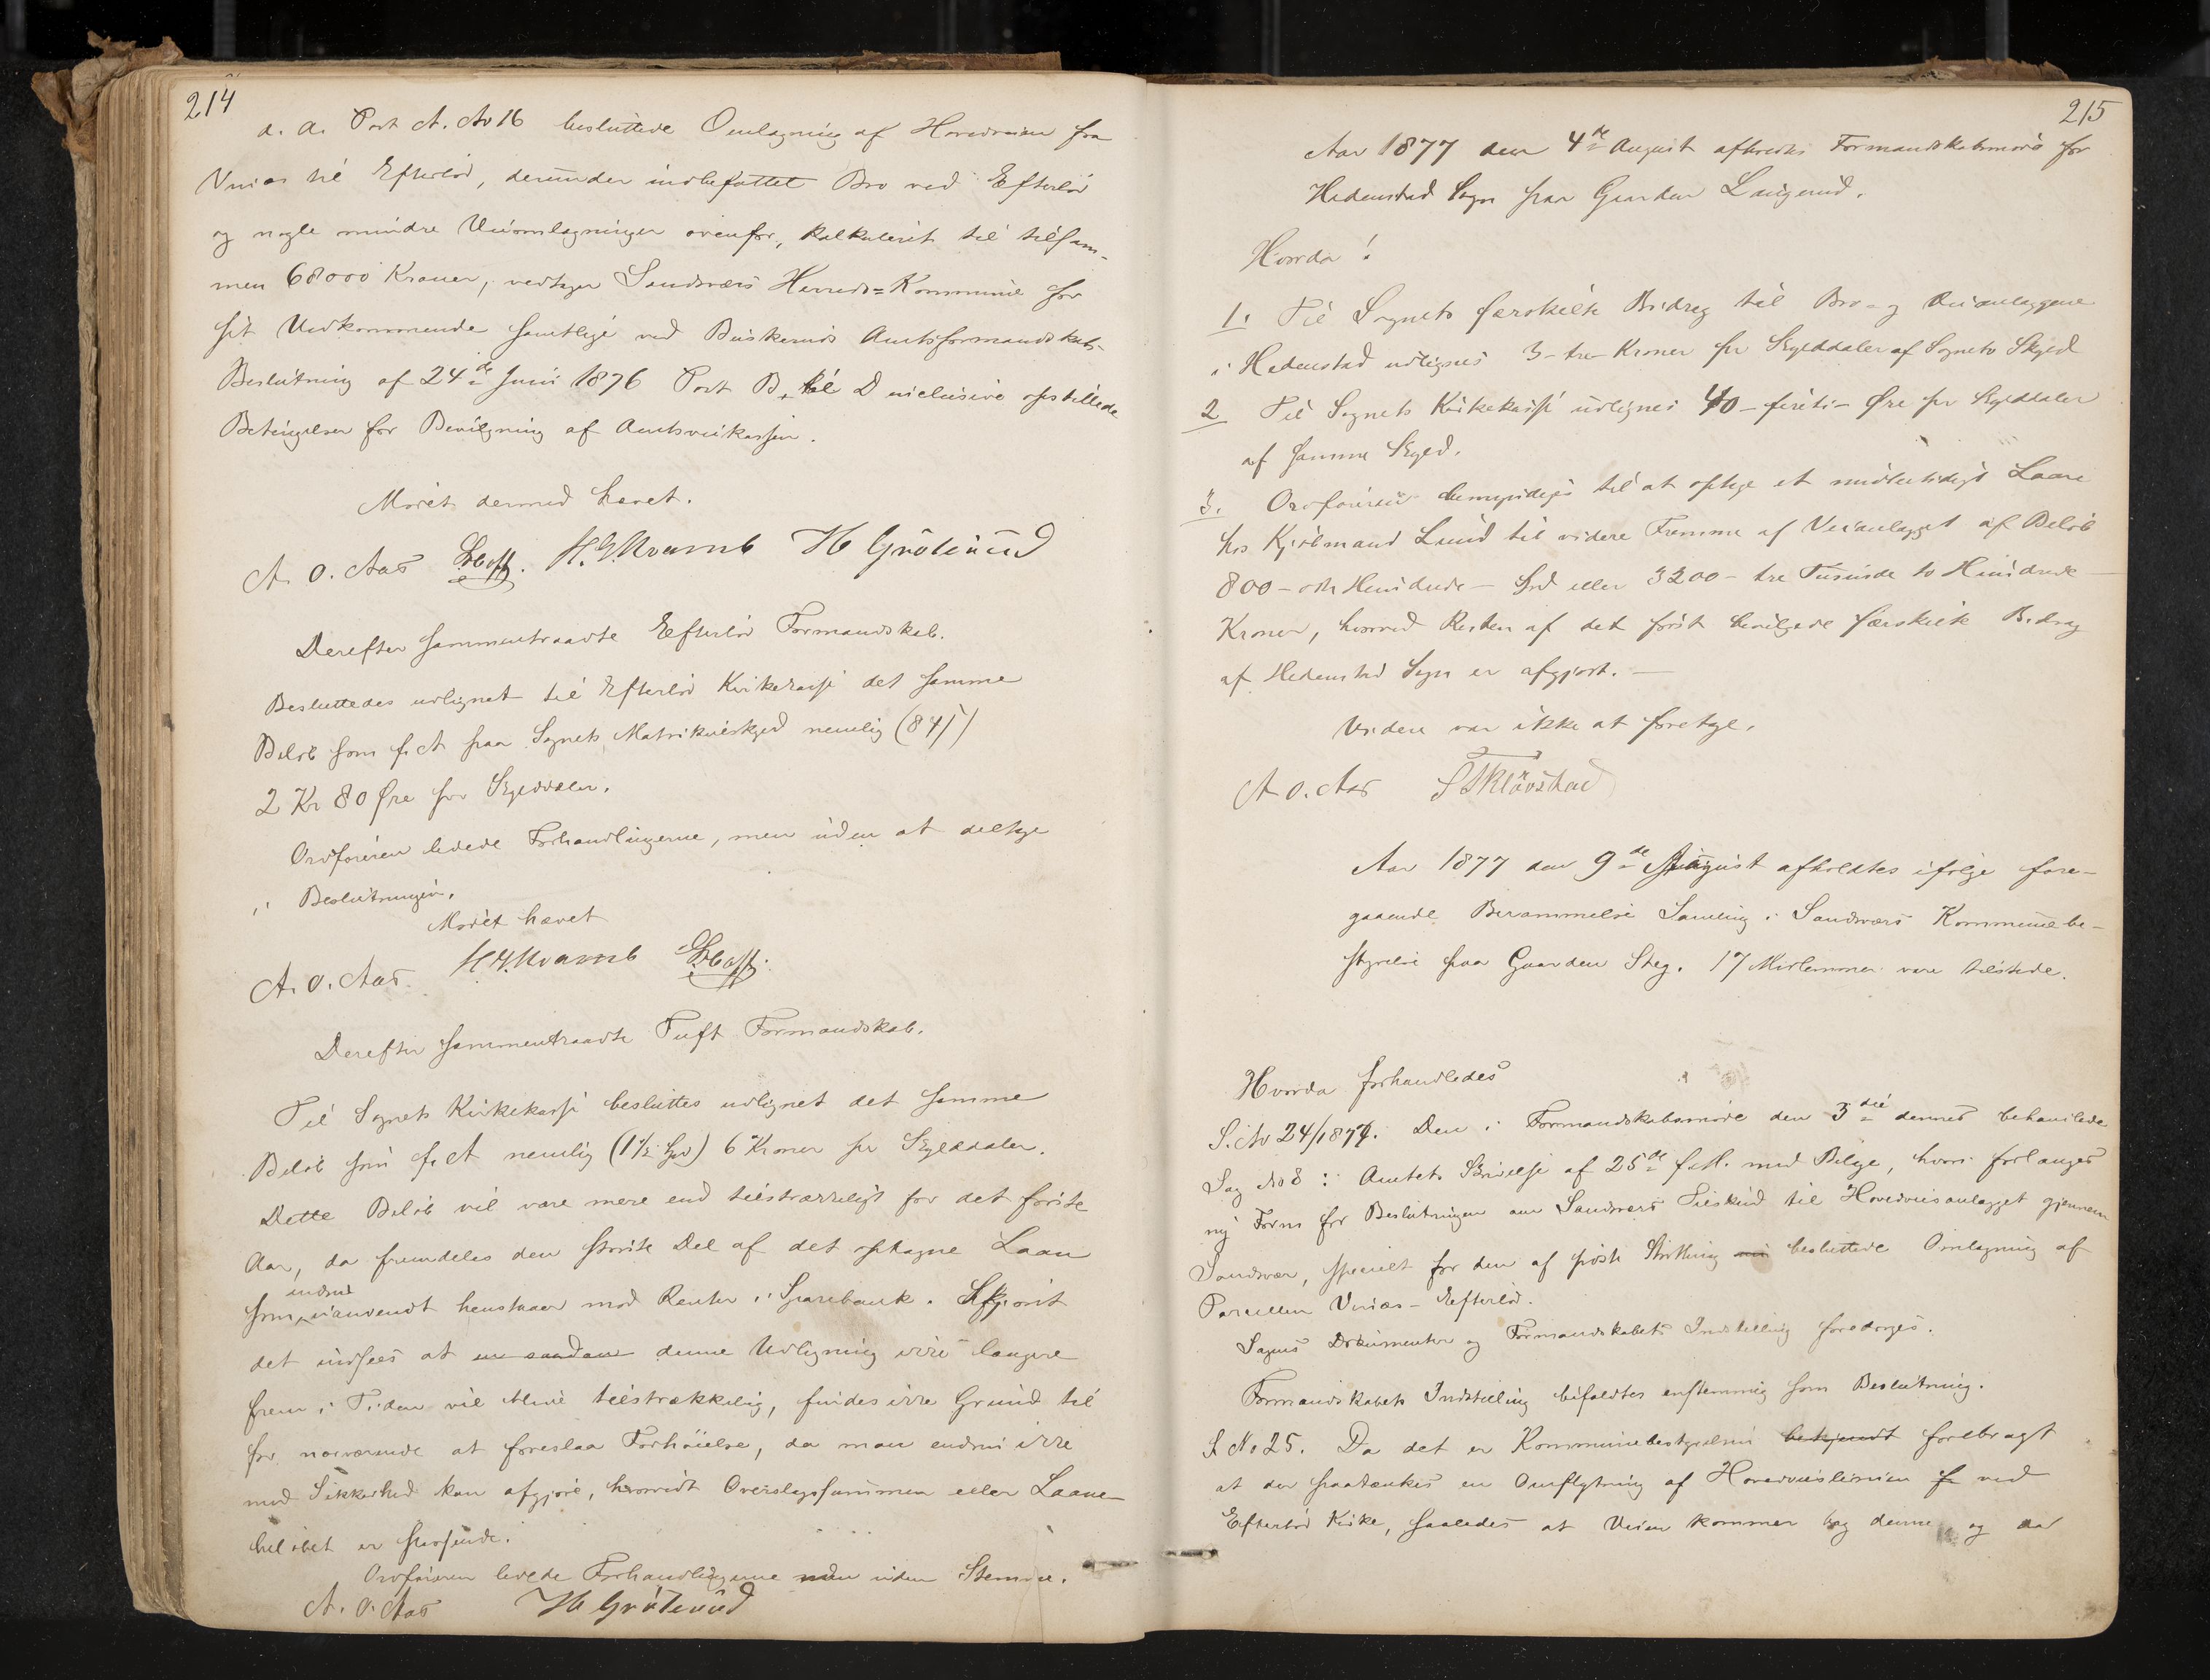 214
d. a. Post A. No 16 besluttede Omlægning af Hovedveien fra
Vniæs til Efterlöd, derunder indbefattet Bro ved Efterlöd
og nogle mindre Veiomlægninger ovenfor, kalkuleret til tilsam-
men 68000 Kroner, vedtager Sandsværs Herreds=Kommune for
sit Vedkommende samtlige ved Buskeruds Amtsformandskabs-
Beslutning af 24de Juni 1876 Post B, til D inclusive opstillede
Betingelser for Bevilgning af Amtsveikassen.
Mödet dermed hævet.
A. O. Aas H. G. Kvamb H Grölerud
Derefter sammentraadte Efterlöd Formandskab.
Besluttedes udlignet til Efterlöd Kirkekasse det samme
Belöb som f. A paa Sognets Matrikulskyld nemlig (84 /)
2 Kr 80 Øre per Skylddaler.
Ordföreren ledede Forhandlingerne, men uden at deltage
i Beslutningen.
Mödet hævet
A. O. Aas H G. Kvamb
Derefter sammentraadte Tuft Formandskab.
Til Sognets Kirkekasse besluttes udlignet det samme
Belöb som f. A nemlig (1 1/2 Spd) 6 Kroner per Skylddaler.
Dette Belöb vil være mere end tilstrækkeligt for det förste
Aar, da fremdeles den störste Del af det optagne Laan
endnu
som uanvendt henstaar mod Renter i Sparebank. Skjönt
det indsees at en saadan denne Udligning ikke længere
frem i Tiden vil blive tilstrækkelig, findes ikke Grund til
for nærværende at foreslaa Forhöielse, da man endnu ikke
med Sikkerhed kan afgjöre, hvorvidt Overslagssummen eller Laane-
belöbet er passende.
Ordföreren ledede Forhandlingerne men uden Stemme.
A. O. Aas H Grölerud
215
Aar 1877 den 4de August afholdtes Formandskabsmöde for
Hedenstad Sogn paa Gaarden Laugerud.
Hvorda!
1. Til Sognets særskilte Bidrag til Bro- og Veianlæggene
i Hedenstad udlignes 3 - tre - Kroner per Skylddaler af Sognets Skyld
2 Til Sognets Kirkekasse udlignes 40 - fireti - Øre per Skylddaler
af samme Skyld.
3. Ordföreren bemyndiges til at optage et midlertidigt Laan
hos Kjöbmand Lund til videre Fremme af Veianlægget af Belöb
800 - otte Hundrede - Spd eller 3200 - tre Tusinde to Hundrede -
Kroner, hvorved Resten af det först bevilgede særskilte Bidrag
af Hedenstad Sogn er afgjort. -
Videre var ikke at foretage.
A O. Aas
Aar 1877 den 9de August afholdtes ifölge fore-
gaaende Berammelse Samling i Sandsværs Kommunebe-
styrelse paa Gaarden Steg. 17 Medlemmer vare tilstede.
Hvorda forhandledes
S. No 24/1877. Den i Formandskabsmöde den 3die dennes behandlede
Sag No 8: Amtets Skrivelse af 25de f. M. med Bilage, hvori forlanges
ny Form for Beslutningen om Sandsværs Tilskud til Hovedveisanlægget gjennem
Sandsvær, specielt for den af sidste Storthing besluttede Omlægning af
Parcellen Vniæs - Efterlöd.
Sagens Dokumenter og Formandskabets Indstilling foredroges.
Formandskabets Indstilling bifaldtes enstemmig som Beslutning.
S No 25. Da det er Kommunebestyrelsen bekjendt forebragt
at der paatænkes en Omflytning af Hovedveislinien f ved
Efterlöd Kirke, saaledes at Veien kommer bag denne og da